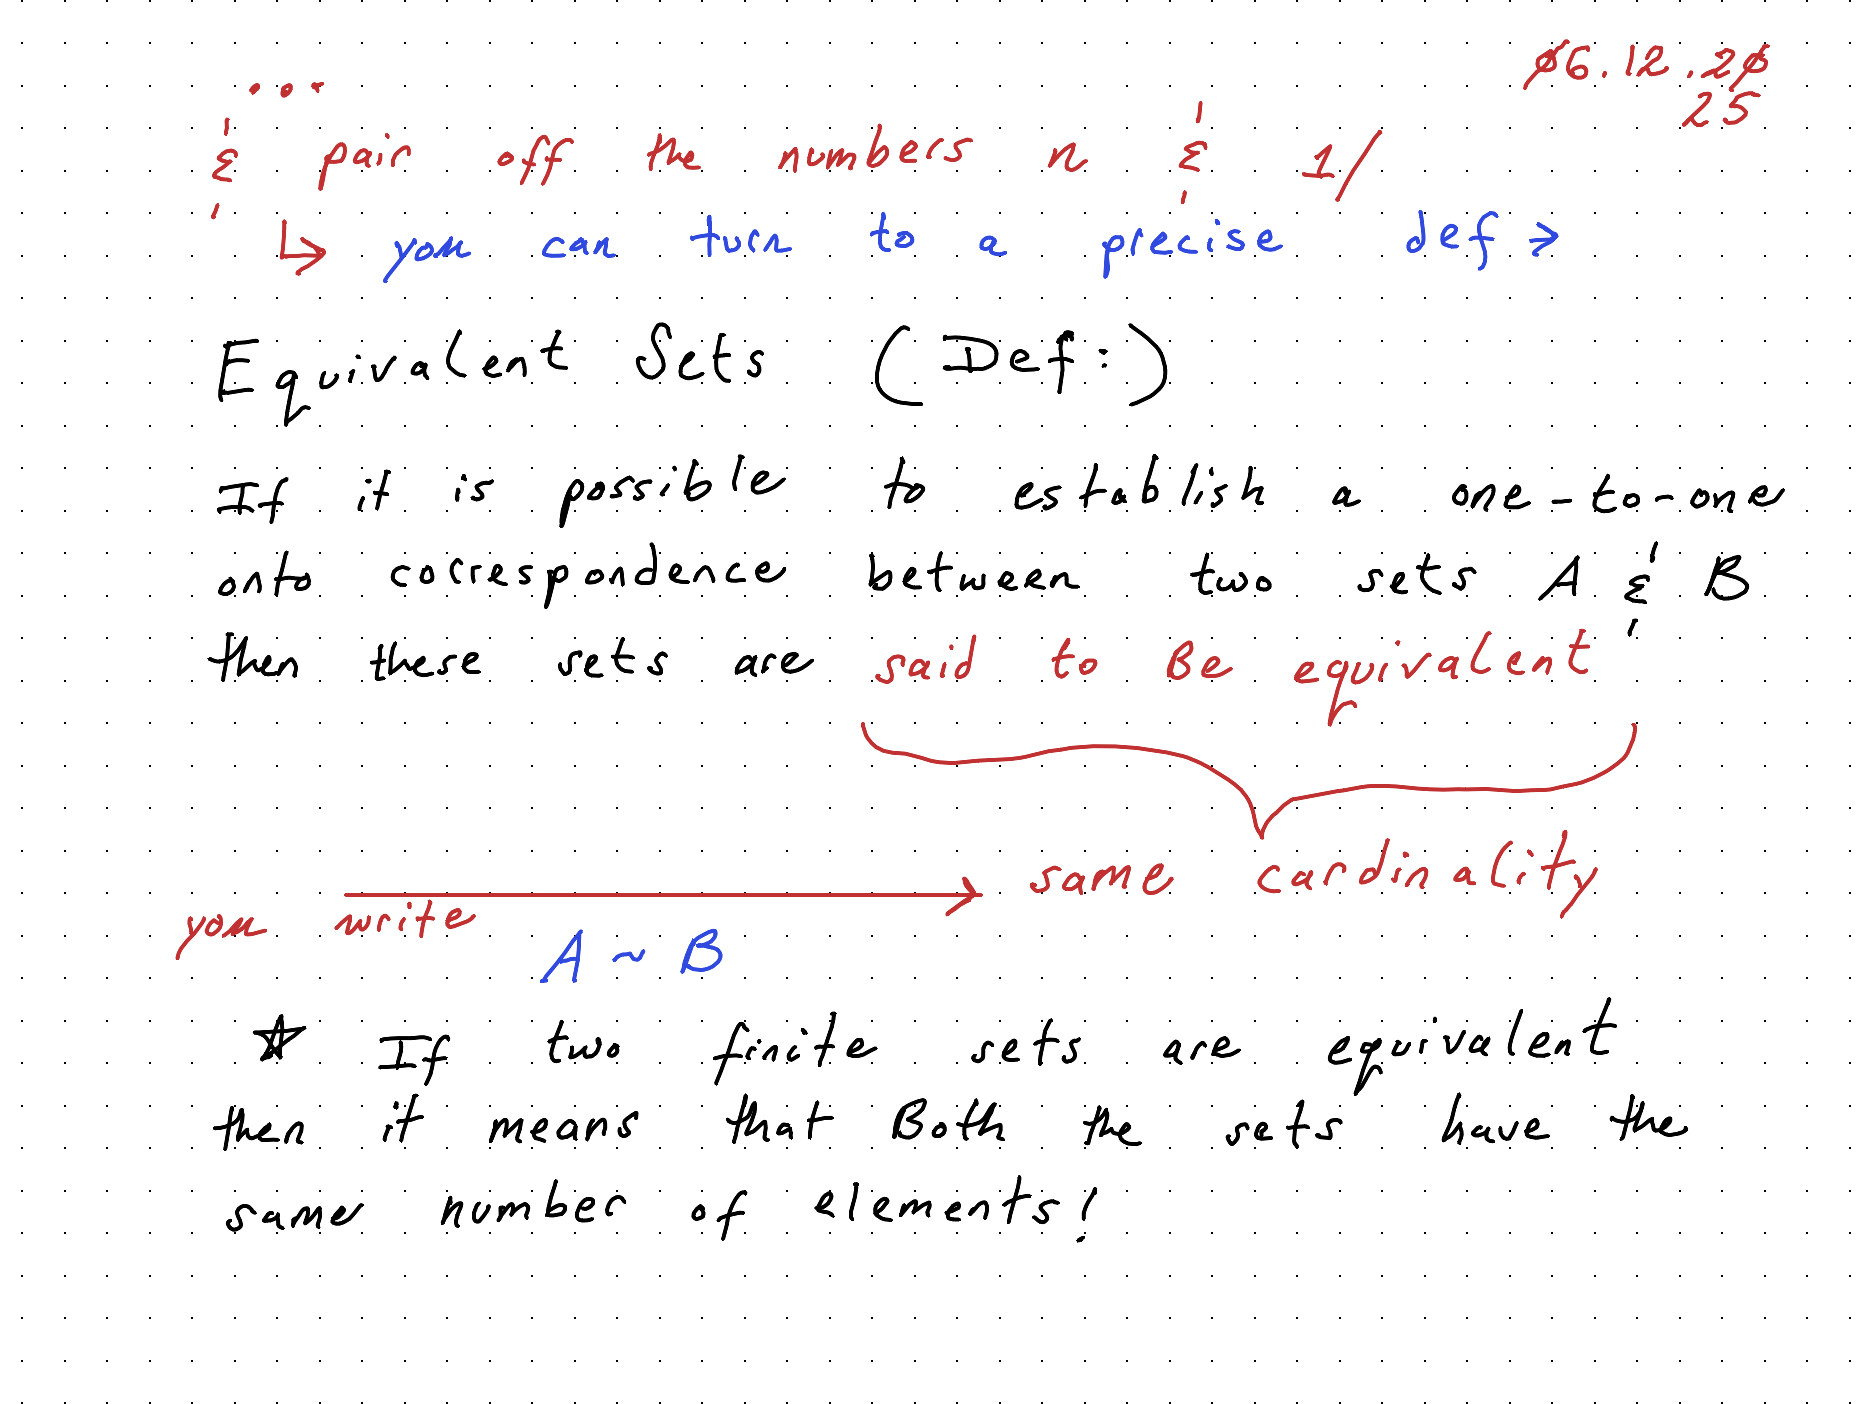 06.12.20
25
...
& pair off the numbers n & 1/
↳ you can turn to a precise def →
Equivalent Sets (Def:)
If it is possible to establish a one-to-one
onto correspondence between two sets A & B
then these sets are said to Be equivalent
same cardinality
you write
A ~ B
☆ If two finite sets are equivalent
then it means that Both the sets have the
same number of elements!